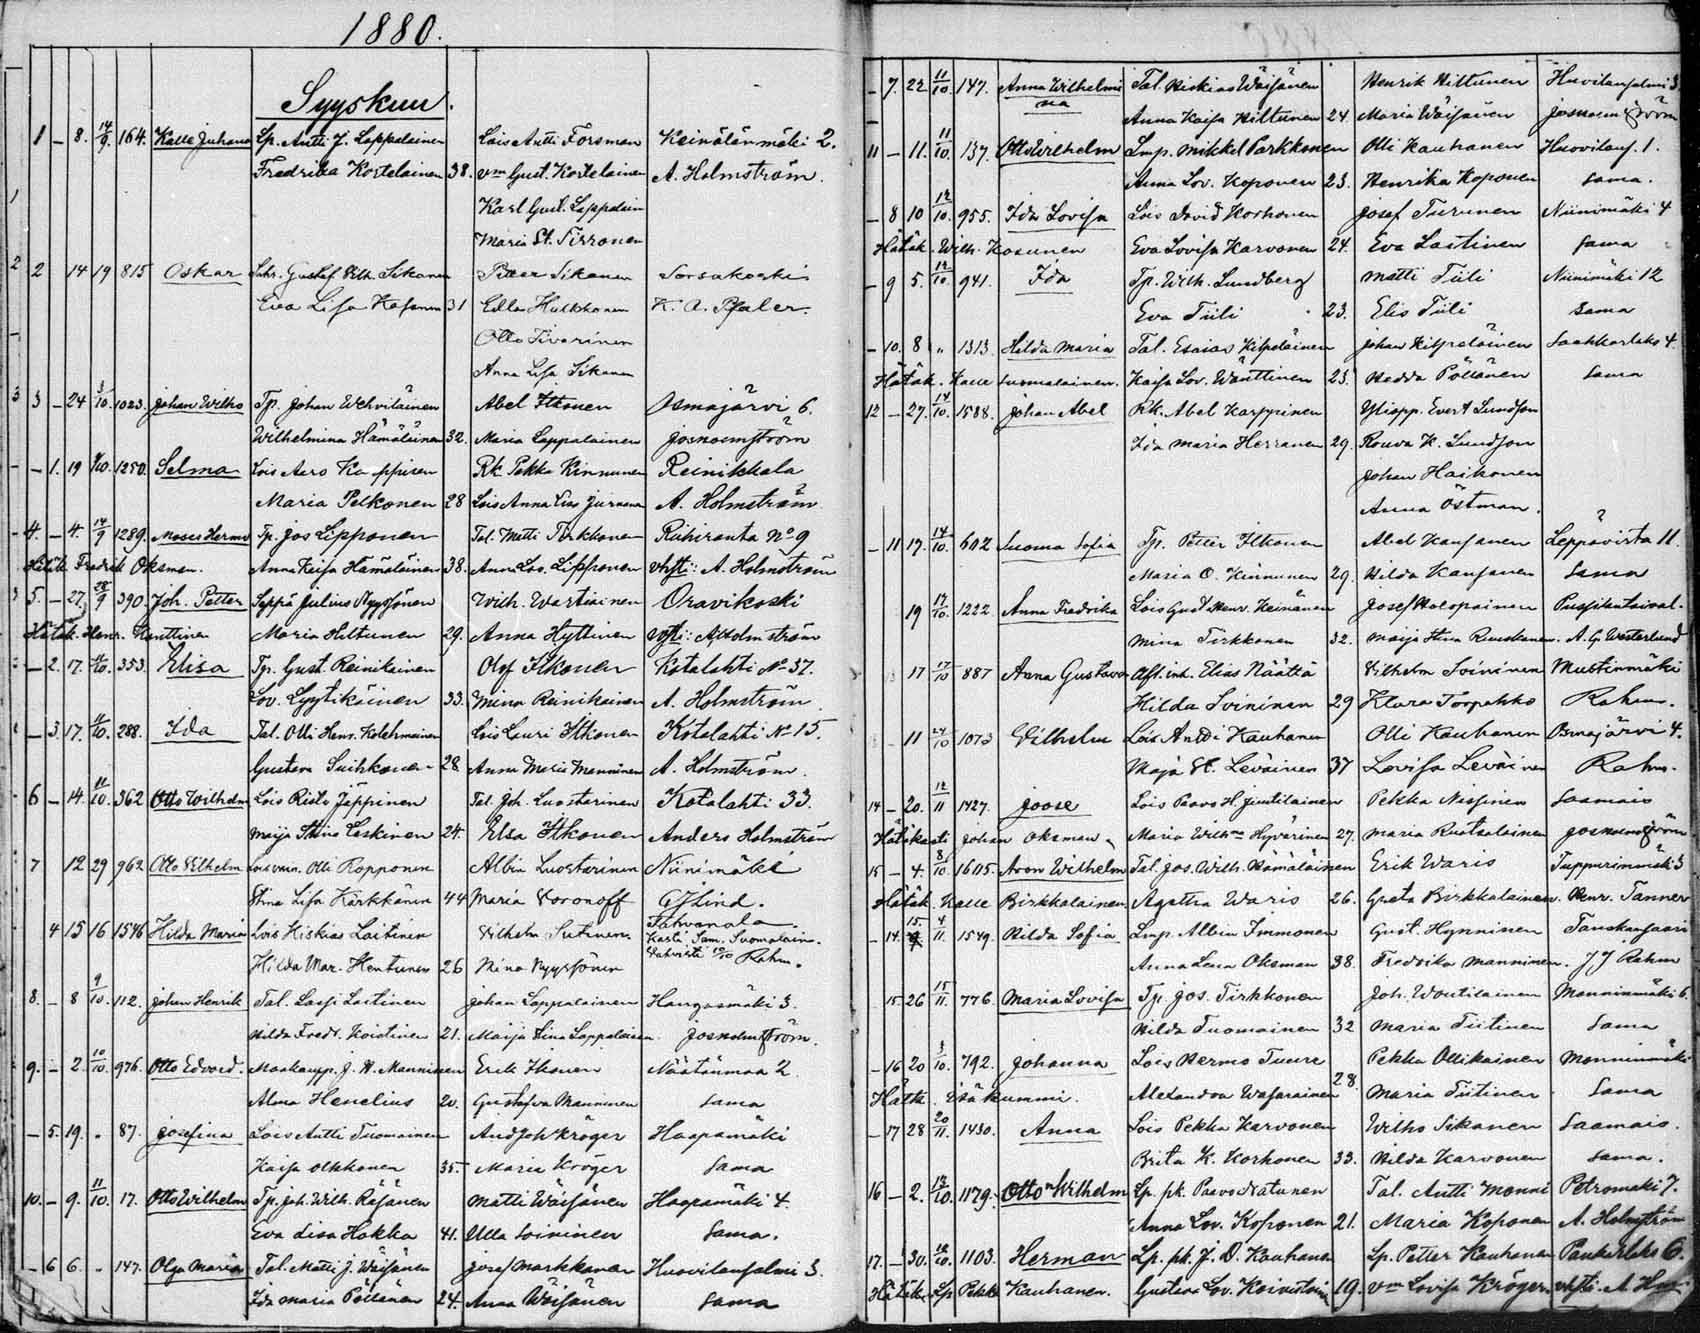 1880.
Syyskuu.
1 – 8. 14/9 164. Kalle Juhana Lp. Antti J. Lappalainen Lois Antti Forsman Keinälänmäki 2.
Fredrika Kortelainen 38. vm Gust. Kortelainen A. Holmström.
Karl Gust. Lappalain
Maria St. Sirronen
2 14 19 815 Oskar Gustaf Vilh. Sikanen Petter Sikanen Sorsakoski
Eva Lisa Kosonen 31 Ulla Hulkkonen K. A. Pfaler.
Otto Sivarinen
Anna Lisa Sikanen
3 – 24 3/10. 1023. Johan Wilho Tp. Johan Wehviläinen Abel Itkonen Osmajärvi 6.
Wilhelmina Hämäläinen 32. Maria Lappalainen Jos Holmström
– 1. 19 1250. Selma Lois Aaro Karppinen Rk. Pekka Kinnunen Reinikkala
Maria Pelkonen 28 Lois Anna Lisa A. Holmström
4. – 4. 14/9 1289. Moses Herm Tp. Jos Lipponen Tal. Matti Tirkkonen Ruhiranta No 9
Hätäk. Fredrik Oksman. Anna Kaisa Hämäläinen 38. Anna Lov. Lipponen vhti: A. Holmström
5. – 27. 28/9 390. Joh. Petter Seppä Julius Nyyssönen Wilh. Wartiainen Oravikoski
Hätäk. Henr. Kanttinen Maria Hiltunen 29. Anna Hyttinen vhti: A Holmström
– 2. 17. 353. Elisa Tp. Gust. Reinikainen Olof Itkonen Kotalahti No 37.
Lov. Lyytikäinen 33. Mina Reinikainen A. Holmström
– 3. 17. 11/10. 288. Ida Tal. Olli Henr. Kolehmainen Lois Lauri Itkonen Kotalahti No 15.
Gustava Suihkonen 28. Anna Maria Manninen A. Holmström.
6 – 14. 11/10. 362 Otto Wilhelm Lois Risto Jäppinen Tal. Joh. Luostarinen Kotalahti 33.
Maija Stina Leskinen 24. Elsa Itkonen Anders Holmström
7 12 29 962 Otto Vilhelm Olli Ropponen Albin Luostarinen Niinimäki
Stina Lisa Kärkkänen 44 Maria Voronoff Lind.
4 15 16 1546 Hilda Maria Lois Hiskias Laitinen Vilhelm Sutinen
Hilda Mar. Hentunen 26 Mina Nyyssönen Kasti Sam. Suomalain. Rahm.
8. – 8 9/10. 112. Johan Henrik Tal. Lassi Laitinen Johan Lappalainen Hangasmäki 3.
Hilda Fredr. Koistinen 21. Maija Lina Lappalainen Jos Holmström.
9. – 2. 10/10. 976. Otto Edvard. Maakaupp. J. H. Manninen Erik Itkonen Näätänmaa 2.
Alma Henelius 20. Gustafva Manninen Sama
– 5. 19. " 87. Josefina Lois Antti Tuomainen And Joh Kröger Haapamäki
Kaisa Okkonen 35. Maria Kröger Sama
10. – 9. 11/10. 17. Otto Wilhelm Tp. Joh. Wilh. Räsänen Matti Wäisänen Haapamäki 4.
Eva Lisa Hakka 41. Ulla Soininen Sama.
– 6 6. " 147. Olga Maria Tal. Matti J. Wäisänen Josef Markkanen Huovilansalmi 3.
Ida Maria Pöllänen 24. Anna Wäisänen Sama
– 7. 22 11/10. 147. Anna Wilhelmi Tal. Hiskias Wäisänen Henrik Hiltunen Huovilansalmi 3.
na Anna Kaisa Hiltunen 24. Maria Wäisänen Jos Holmström
11 – 11. 11/10. 137. Otto Wilhelm Lmp. Mikkel Parkkonen Olli Kauhanen Huovilans. 1.
Anna Lov. Koponen 23. Henrika Koponen Sama.
– 8 10 12/10. 955. Ida Lovisa Lois David Korhonen Josef Turunen Niinimäki 4
Hätäk. Wilh. Kosunen Eva Lovisa Karvonen 24. Eva Laitinen Sama
– 9 5. 12/10. 941. Ida Tp. Wilh. Lundberg Matti Tiili Niinimäki 12
Eva Tiili 23. Elis Tiili Sama
– 10. 8 " 1313. Hilda Maria Tal. Esaias Kilpeläinen Johan Kilpeläinen Saahkarlaks 4.
Hätäk. Kalle Suomalainen. Kaisa Lov. Wänttinen 23. Hedda Pöllänen Sama
12 – 27. 14/10. 1588. Johan Abel Rk. Abel Karppinen Yliopp. Evert Lundson
Ida Maria Herranen 29. Rouva K. Lundson
Johan Haikonen
Anna Östman.
– 11 17. 14/10. 602 Suoma Sofia Tp. Petter Itkonen Abel Kausanen Leppävirta 11.
Maria O. Kinnunen 29. Hilda Kausanen Sama
19 17/10. 1222 Anna Fredrika Lois Gust Henr. Keinänen Josef Holopainen
Mina Tirkkonen 32. Maija Stina Ruuskanen. A. G. Westerlund
17 17/10 887 Anna Gustava Elias Näättä Vilhelm Soininen Mustinmäki
Hilda Soininen 29 Klara Torpakko Rahm.
– 11 24/10 1073 Vilhelm Lois Antti Kauhanen Olli Kauhanen Osmajärvi 4.
Maja St. Leväinen 37 Lovisa Leväinen Rahm.
14 – 20. 12/11 1427. Joose Lois Paavo H. Juutilainen Pekka Nissinen Saamais
Hätäkasti Johan Oksman. Maria Wilhna Hyvärinen 27. Maria Ruotsalainen Jos Holmström
15 – 4. 8/10. 1605. Aron Wilhelm Tal. Jos. Wilh. Hämäläinen Erik Waris Tuppurinmäki 3
Hätäk. Kalle Birkkalainen. Agatha Waris 26. Greta Birkkalainen. Henr. Tanner
– 14. 4/11. 1549. Hilda Sofia Lmp. Albin Immonen Gust. Hynninen Tanskansaari
Anna Lena Oksman 38. Fredrika Manninen. J J Rahm
15. 26 15/11. 776. Maria Lovisa Tp. Jos. Tirkkonen Joh. Woutilainen Monninmäki 6.
Hilda Tuomainen 32 Maria Tiitinen Sama
– 16 20 /10. 792. Johanna Lois Hermo Tuure Pekka Ollikainen Monninmäki
Hätk. Isäkummi. Alexandra Wasarainen 28. Maria Tiitinen Sama
– 17 28 20/11. 1430. Anna Lois Pekka Karvonen Wilho Sikanen Saamais.
Brita K. Korhonen 33. Hilda Karvonen Sama.
16 – 2. 12/10. 1179. Otto Wilhelm Lp. pk. Paavo Natunen Tal. Antti Monni Petromäki 7.
Anna Lov. Koponen 21. Maria Koponen A. Holmström
17. – 30. 12/10. 1103. Herman Lp. pk. J. O. Kauhanen Lp. Petter Kauhanen Paukarlaks 6.
Hätäk. Lp Pekka Kauhanen. Gustava Lov. Koivistoin 19. vm Lovisa Kröger. vhti. A. Hol